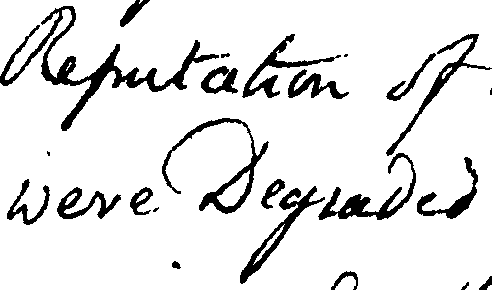 Reputation of
were Degraded